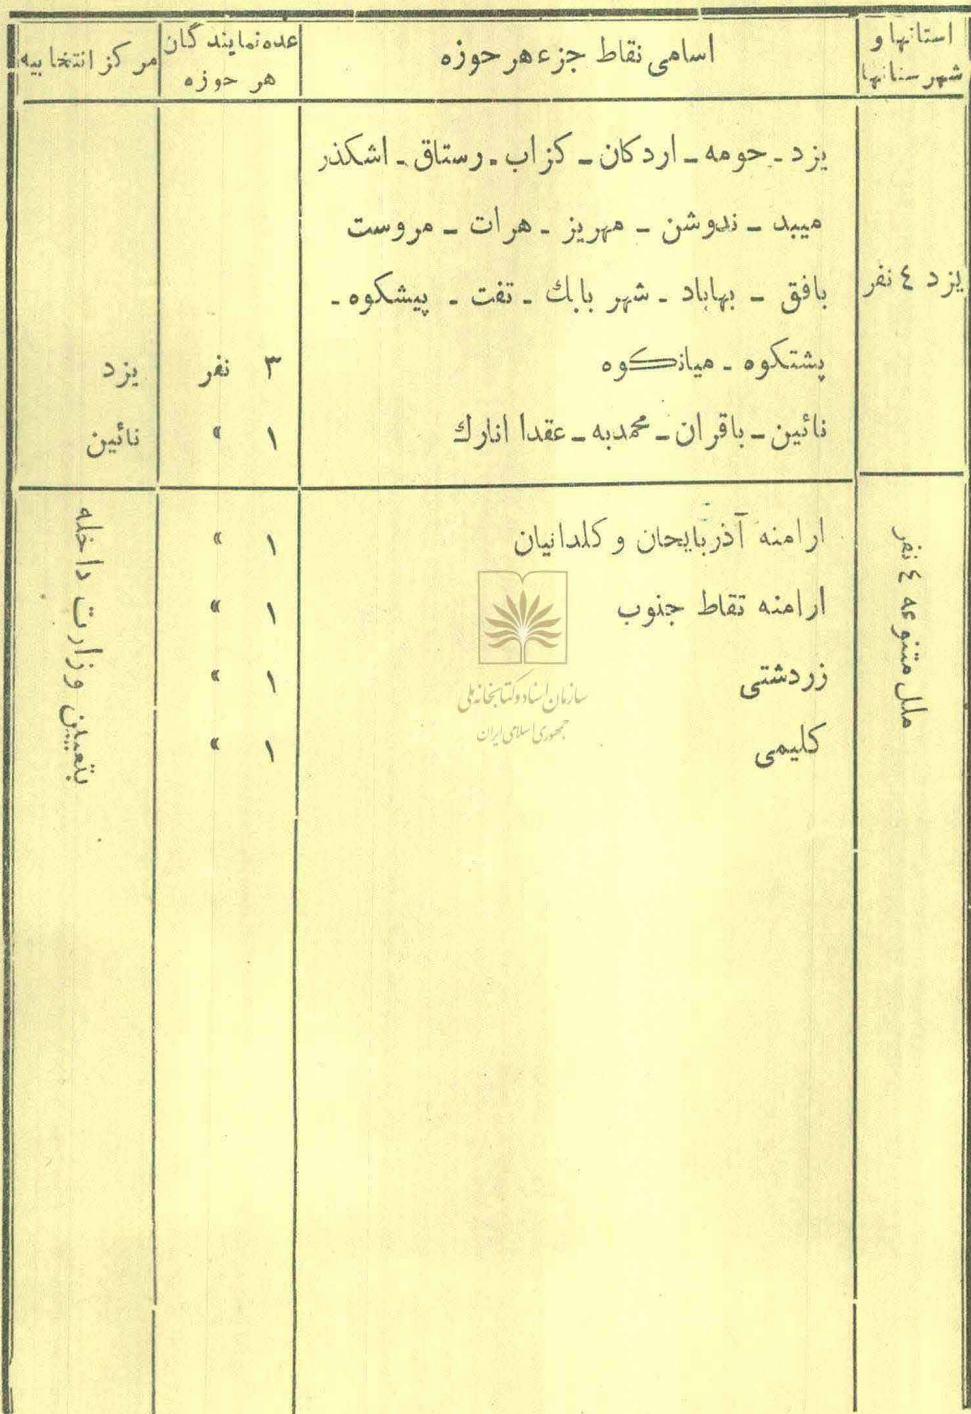 استانها و شهرستانها
اسامی نقاط جزء هر حوزه
عده نمایندگان هر حوزه
مرکز انتخابیه
یزد ٤ نفر
یزد ـ حومه ـ اردکان ـ کزاب ـ رستاق ـ اشکذر
میبد ـ ندوشن ـ مهریز ـ هرات ـ مروست
بافق ـ بهاباد ـ شهر بابك ـ تفت ـ پیشکوه ـ
پشتکوه ـ میانکوه ۳ نفر یزد
نائین ـ باقران ـ محمدبه ـ عقدا انارك ۱ » نائین
ملل متنوعه ٤ نفر
ارامنه آذربایجان و کلدانیان ۱ »
ارامنه تقاط جنوب ۱ »
زردشتی ۱ »
کلیمی ۱ »
بتعیین وزارت داخله
سازمان اسناد و کتابخانه ملی
جمهوری اسلامی ایران